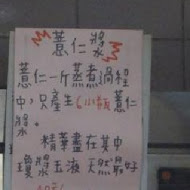 薏仁漿
薏仁一斤蒸煮過程
中,只產生6小瓶薏仁
漿
精華盡在其中
瓊漿玉液天然最好